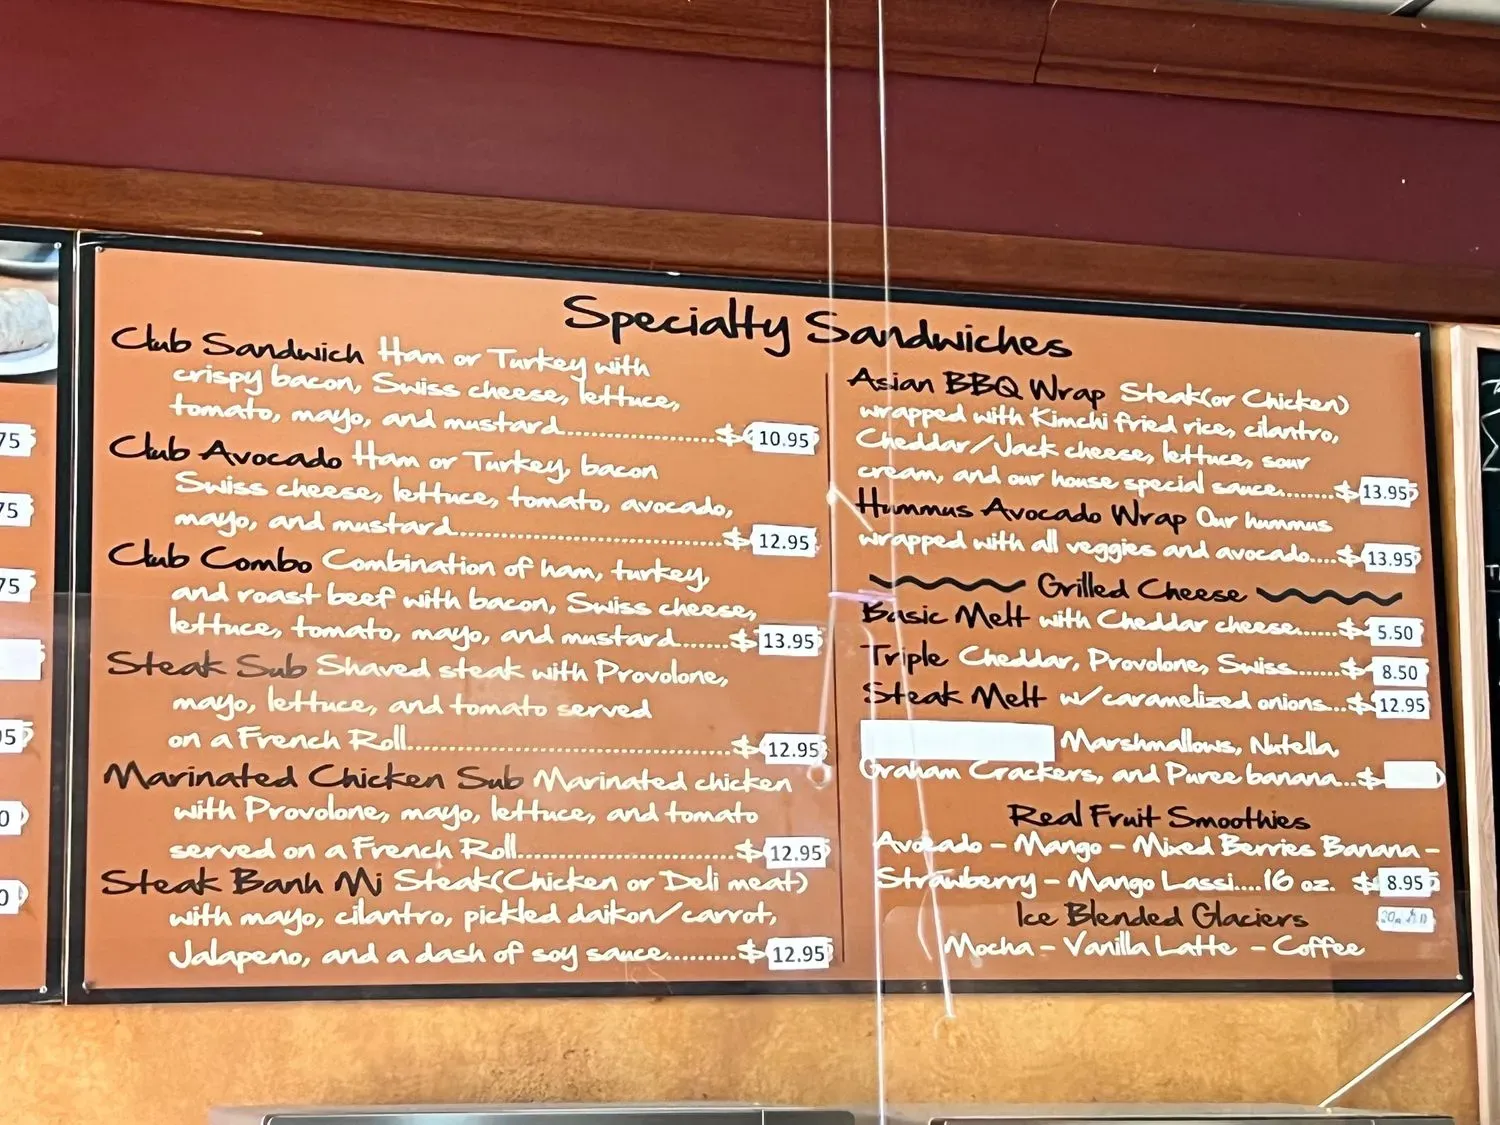 Specialty Sandwiches
Club Sandwich Ham or Turkey with
crispy bacon, Swiss cheese, lettuce,
tomato, mayo, and mustard......................$ 10.95
Club Avocado Ham or Turkey, bacon
Swiss cheese, lettuce, tomato, avocado,
mayo, and mustard........................................$ 12.95
Club Combo Combination of ham, turkey,
and roast beef with bacon, Swiss cheese,
lettuce, tomato, mayo, and mustard.......$ 13.95
Steak Sub Shaved steak with Provolone,
mayo, lettuce, and tomato served
on a French Roll................................................$ 12.95
Marinated Chicken Sub Marinated chicken
with Provolone, mayo, lettuce, and tomato
served on a French Roll................................$ 12.95
Steak Banh Mi Steak(Chicken or Deli meat)
with mayo, cilantro, pickled daikon/carrot,
Jalapeno, and a dash of soy sauce..........$ 12.95
Asian BBQ Wrap Steak(or Chicken)
wrapped with Kimchi fried rice, cilantro,
Cheddar/Jack cheese, lettuce, sour
cream, and our house special sauce........$ 13.95
Hummus Avocado Wrap Our hummus
wrapped with all veggies and avocado....$ 13.95
Grilled Cheese
Basic Melt with Cheddar cheese.......$ 5.50
Triple Cheddar, Provolone, Swiss.......$ 8.50
Steak Melt w/caramelized onions...$ 12.95
Marshmallows, Nutella,
Graham Crackers, and Puree banana...$
Real Fruit Smoothies
Avocado - Mango - Mixed Berries Banana -
Strawberry - Mango Lassi....16 oz. $ 8.95
Ice Blended Glaciers
Mocha - Vanilla Latte - Coffee
75
75
75
95
0
0